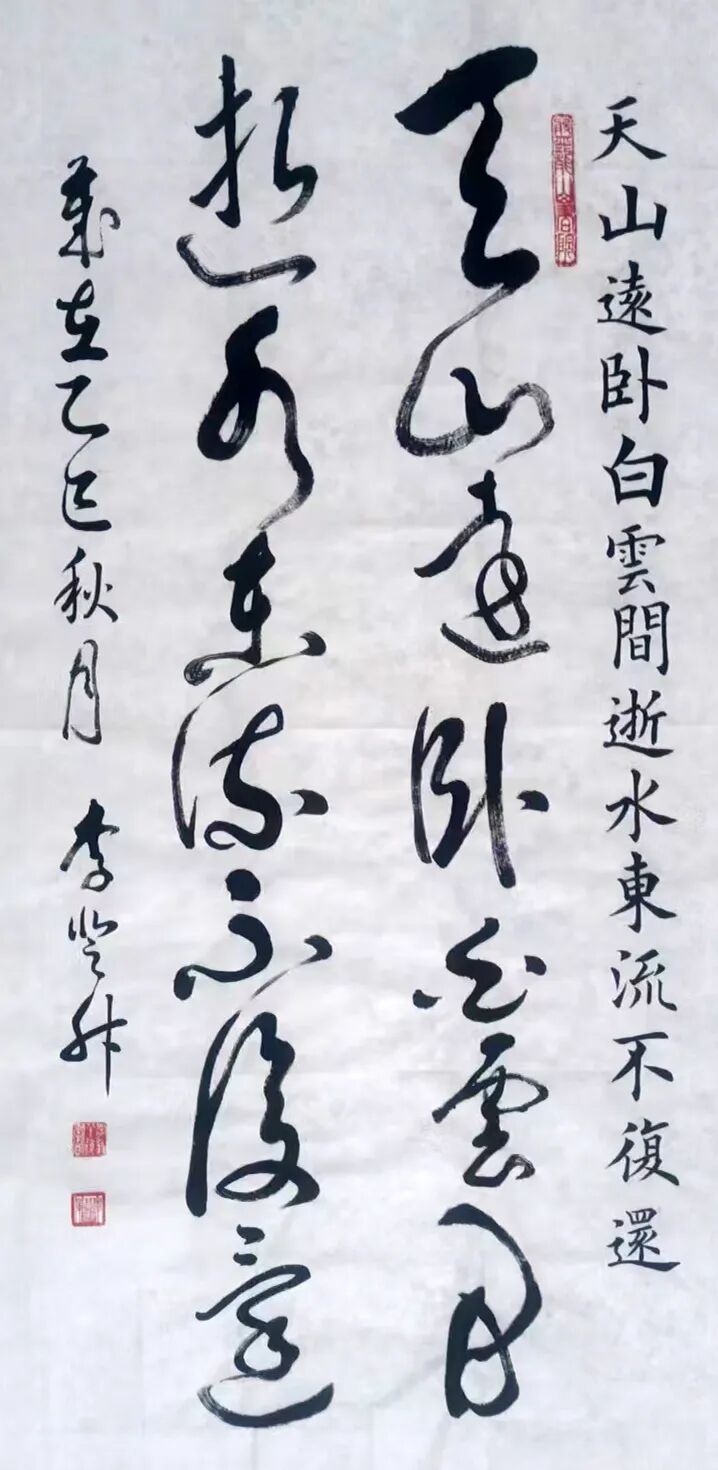 天山遠卧白雲間逝水東流不復還
天山遠卧白雲間
逝水東流不復還
歲在乙巳秋月 李登